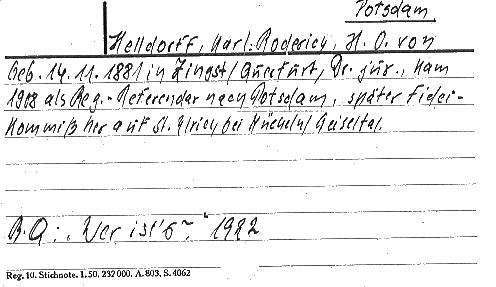 Potsdam
Helldorff, Karl-Roderich, H. O. von
Geb. 14. 11. 1881 in Zingst/Querfurt, Dr. jur., kam
1908 als Reg.-Referendar nach Potsdam, später Fidei-
kommißher auf St. Ulrich bei Mücheln/Geiseltal.
B.Q.: „Wer ist's“ 1922
Reg. 10. Stichnote. 1. 50. 232000. A. 803. S. 4062